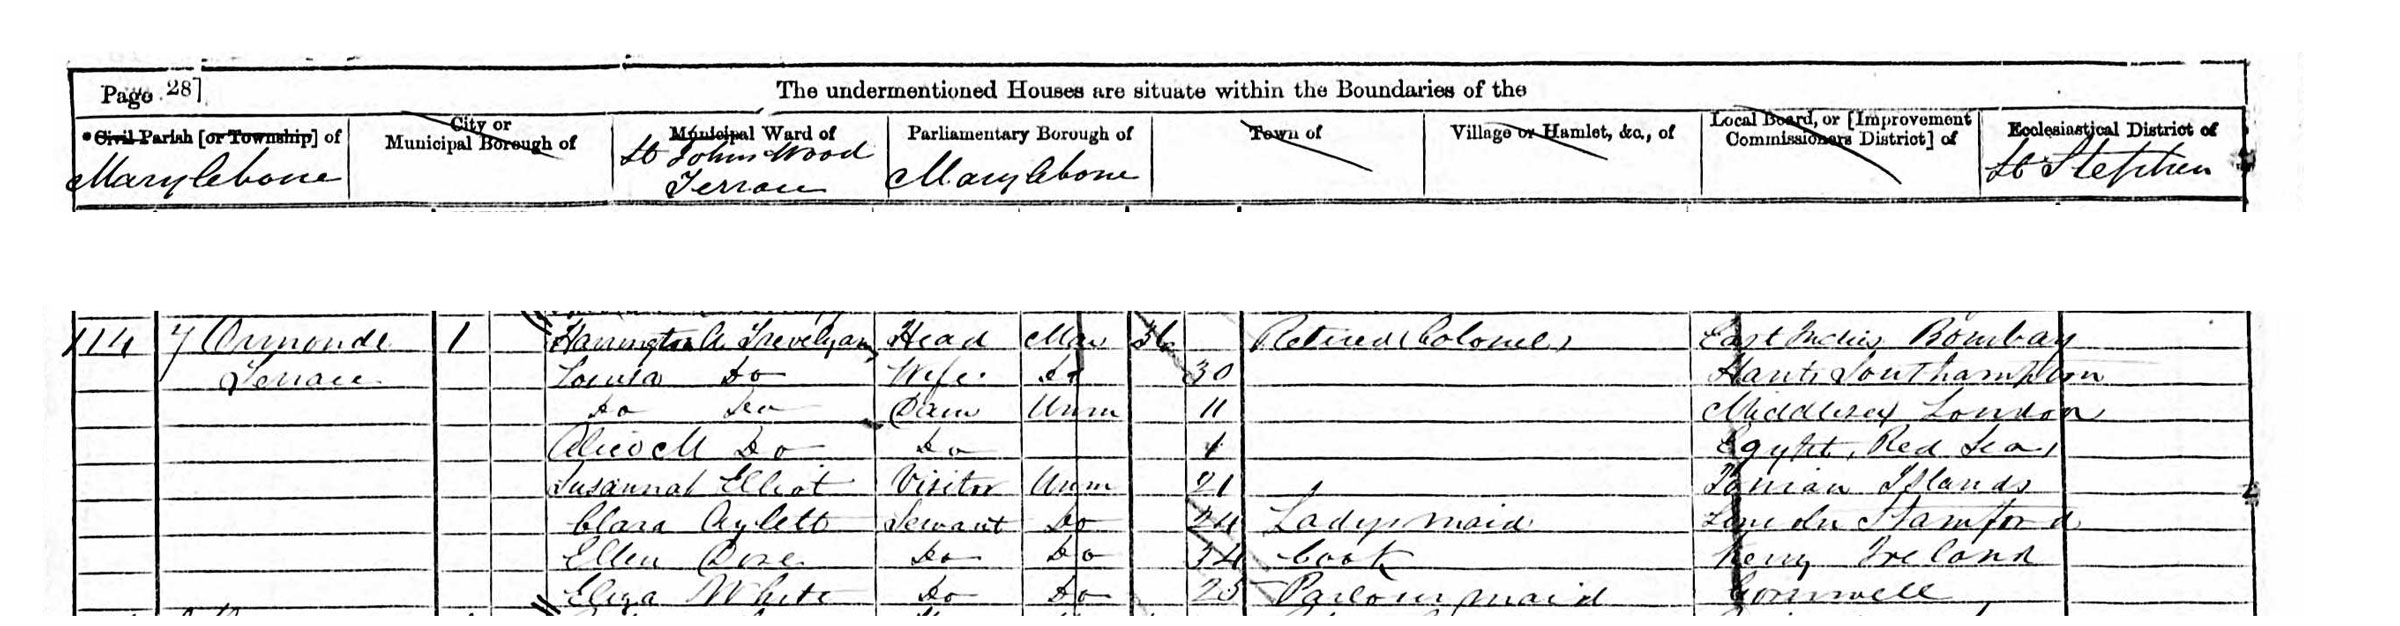 Page 28]
The undermentioned Houses are situate within the Boundaries of the
*Civil Parish [or Township] of
City or Municipal Borough of
Municipal Ward of
Parliamentary Borough of
Town of
Village or Hamlet, &c., of
Local Board, or [Improvement Commissioners District] of
Ecclesiastical District of
Marylebone
St Johns Wood Terrace
Marylebone
St Stephen
114 7 Ormonde 1 Harrington A. Trevelyan Head Mar 36 Retired Colonel East Indies Bombay
Terrace Louisa Do Wife Do 30 Hants Southampton
Do Do Daur Unm 11 Middlesex London
Alice M Do Do 1 Egypt, Red Sea
Susannah Elliot Visitor Unm 21 Ionian Islands
Clara Aylett Servant Do 24 Ladys maid Lincoln Stamford
Ellen Do Do 34 Cook Kerry Ireland
Eliza White Do Do 25 Parlour maid Cornwell